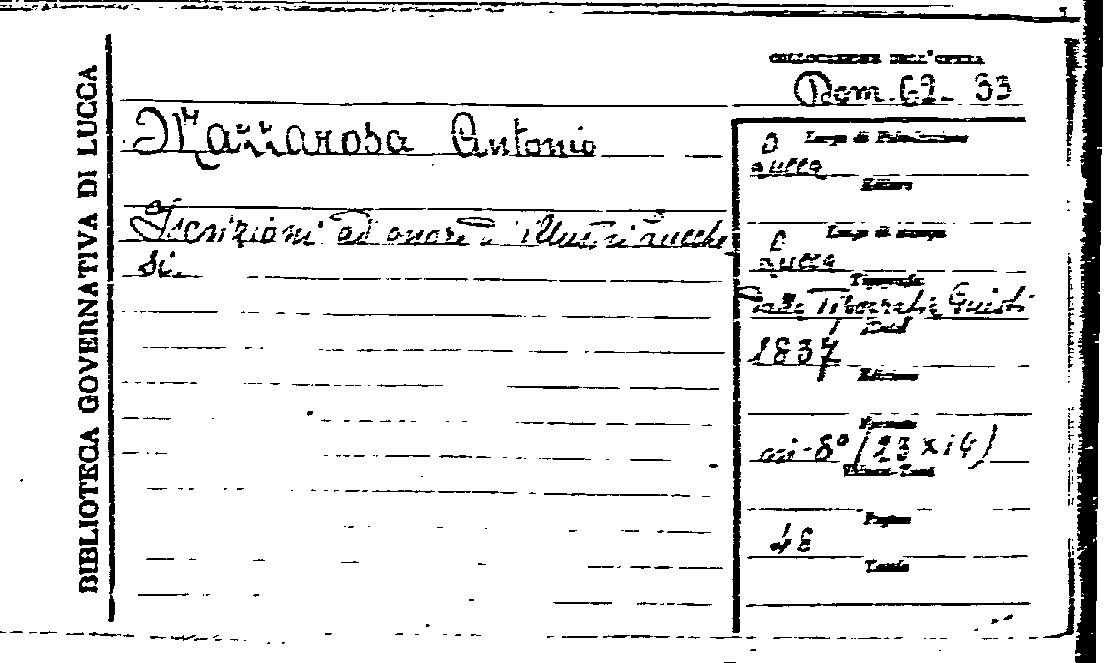 BIBLIOTECA GOVERNATIVA DI LUCCA
COLLOCAZIONE DELL'OPERA
Dom. 62- 33
Mazzarosa Antonio
Iscrizioni ad onore illustri lucche
si.
Luogo di Pubblicazione
Lucca
Editore
Luogo di stampa
Lucca
Tipografia
Dalla Tipografia Giusti
1837
Edizione
Formato
in-8° (23 x 14)
Pagine
48
Tavole